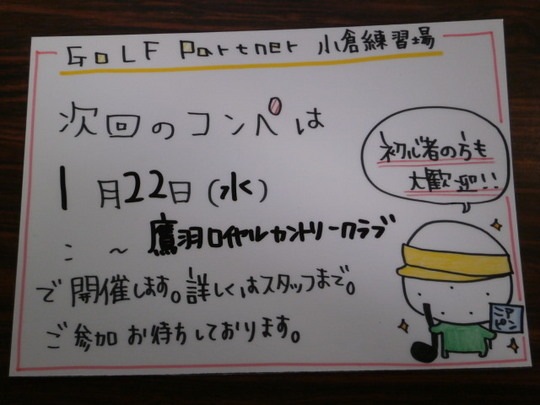 GOLF Partner 小倉練習場
次回のコンペは
1月22日(水)
: ~ 鷹羽ロイヤルカントリークラブ
で開催します。詳しくはスタッフまで。
ご参加お待ちしております。
初心者の方も
大歓迎!!
ニア
ピン